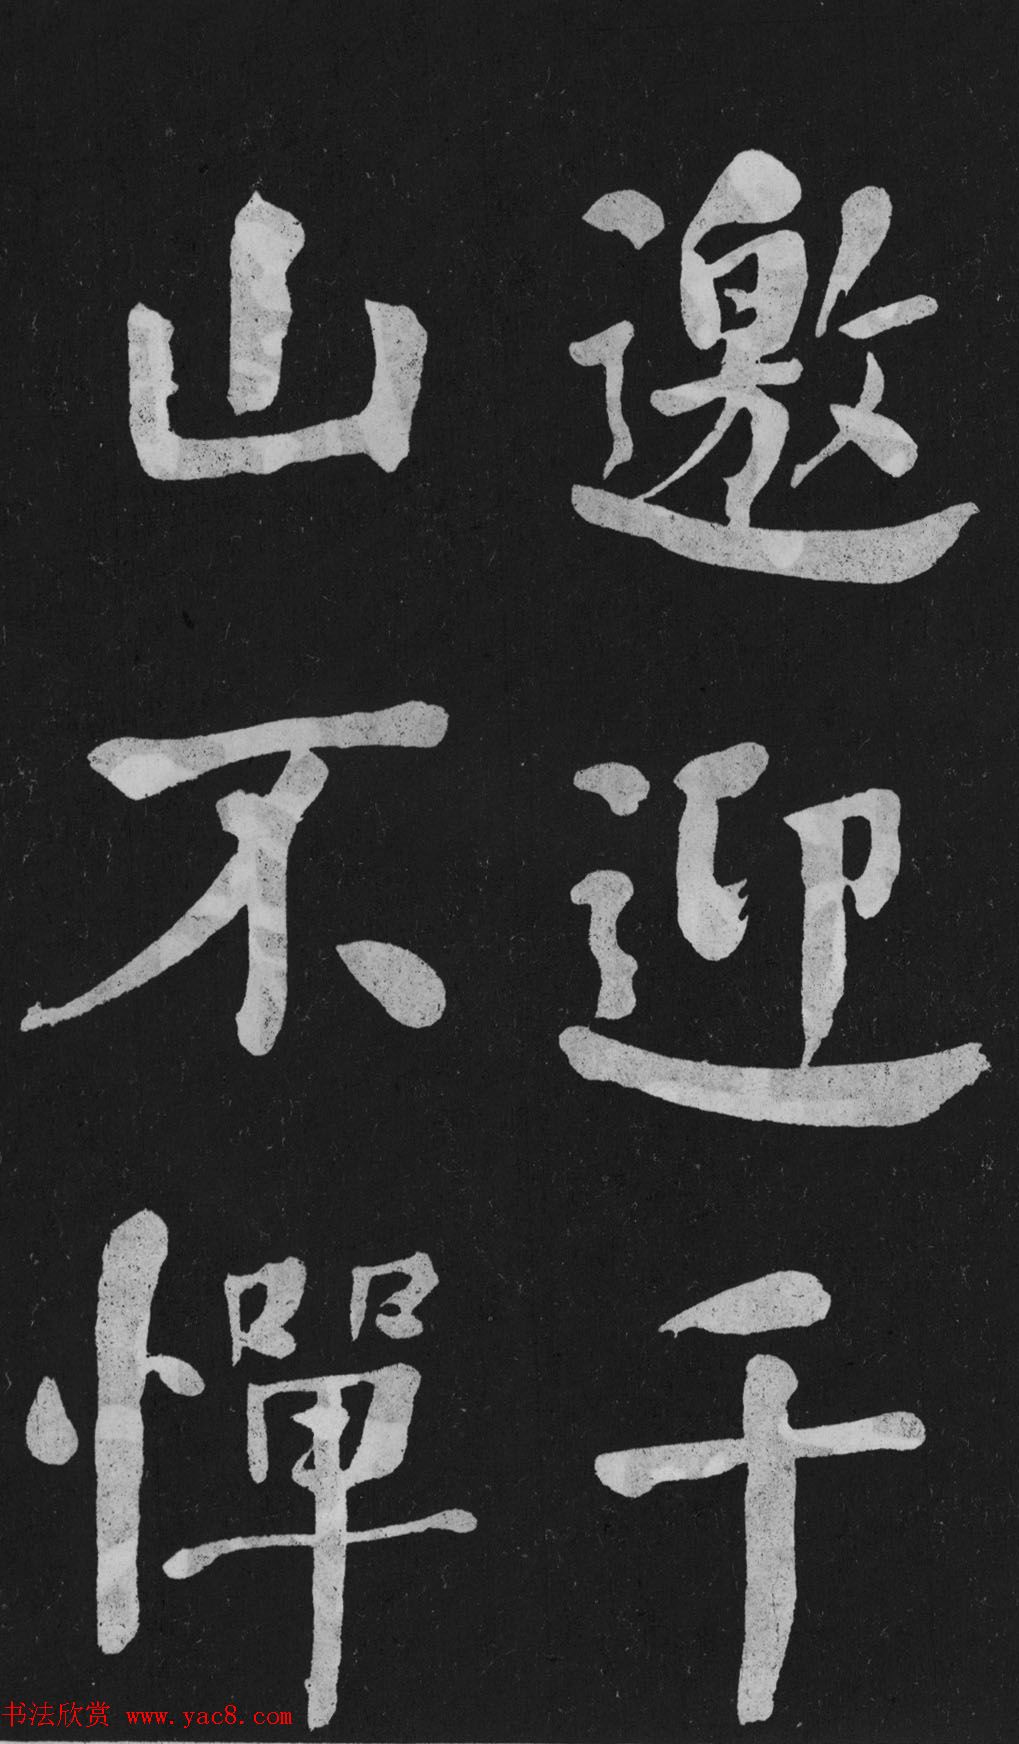 邀迎千
山不憚
书法欣赏 www.yac8.com